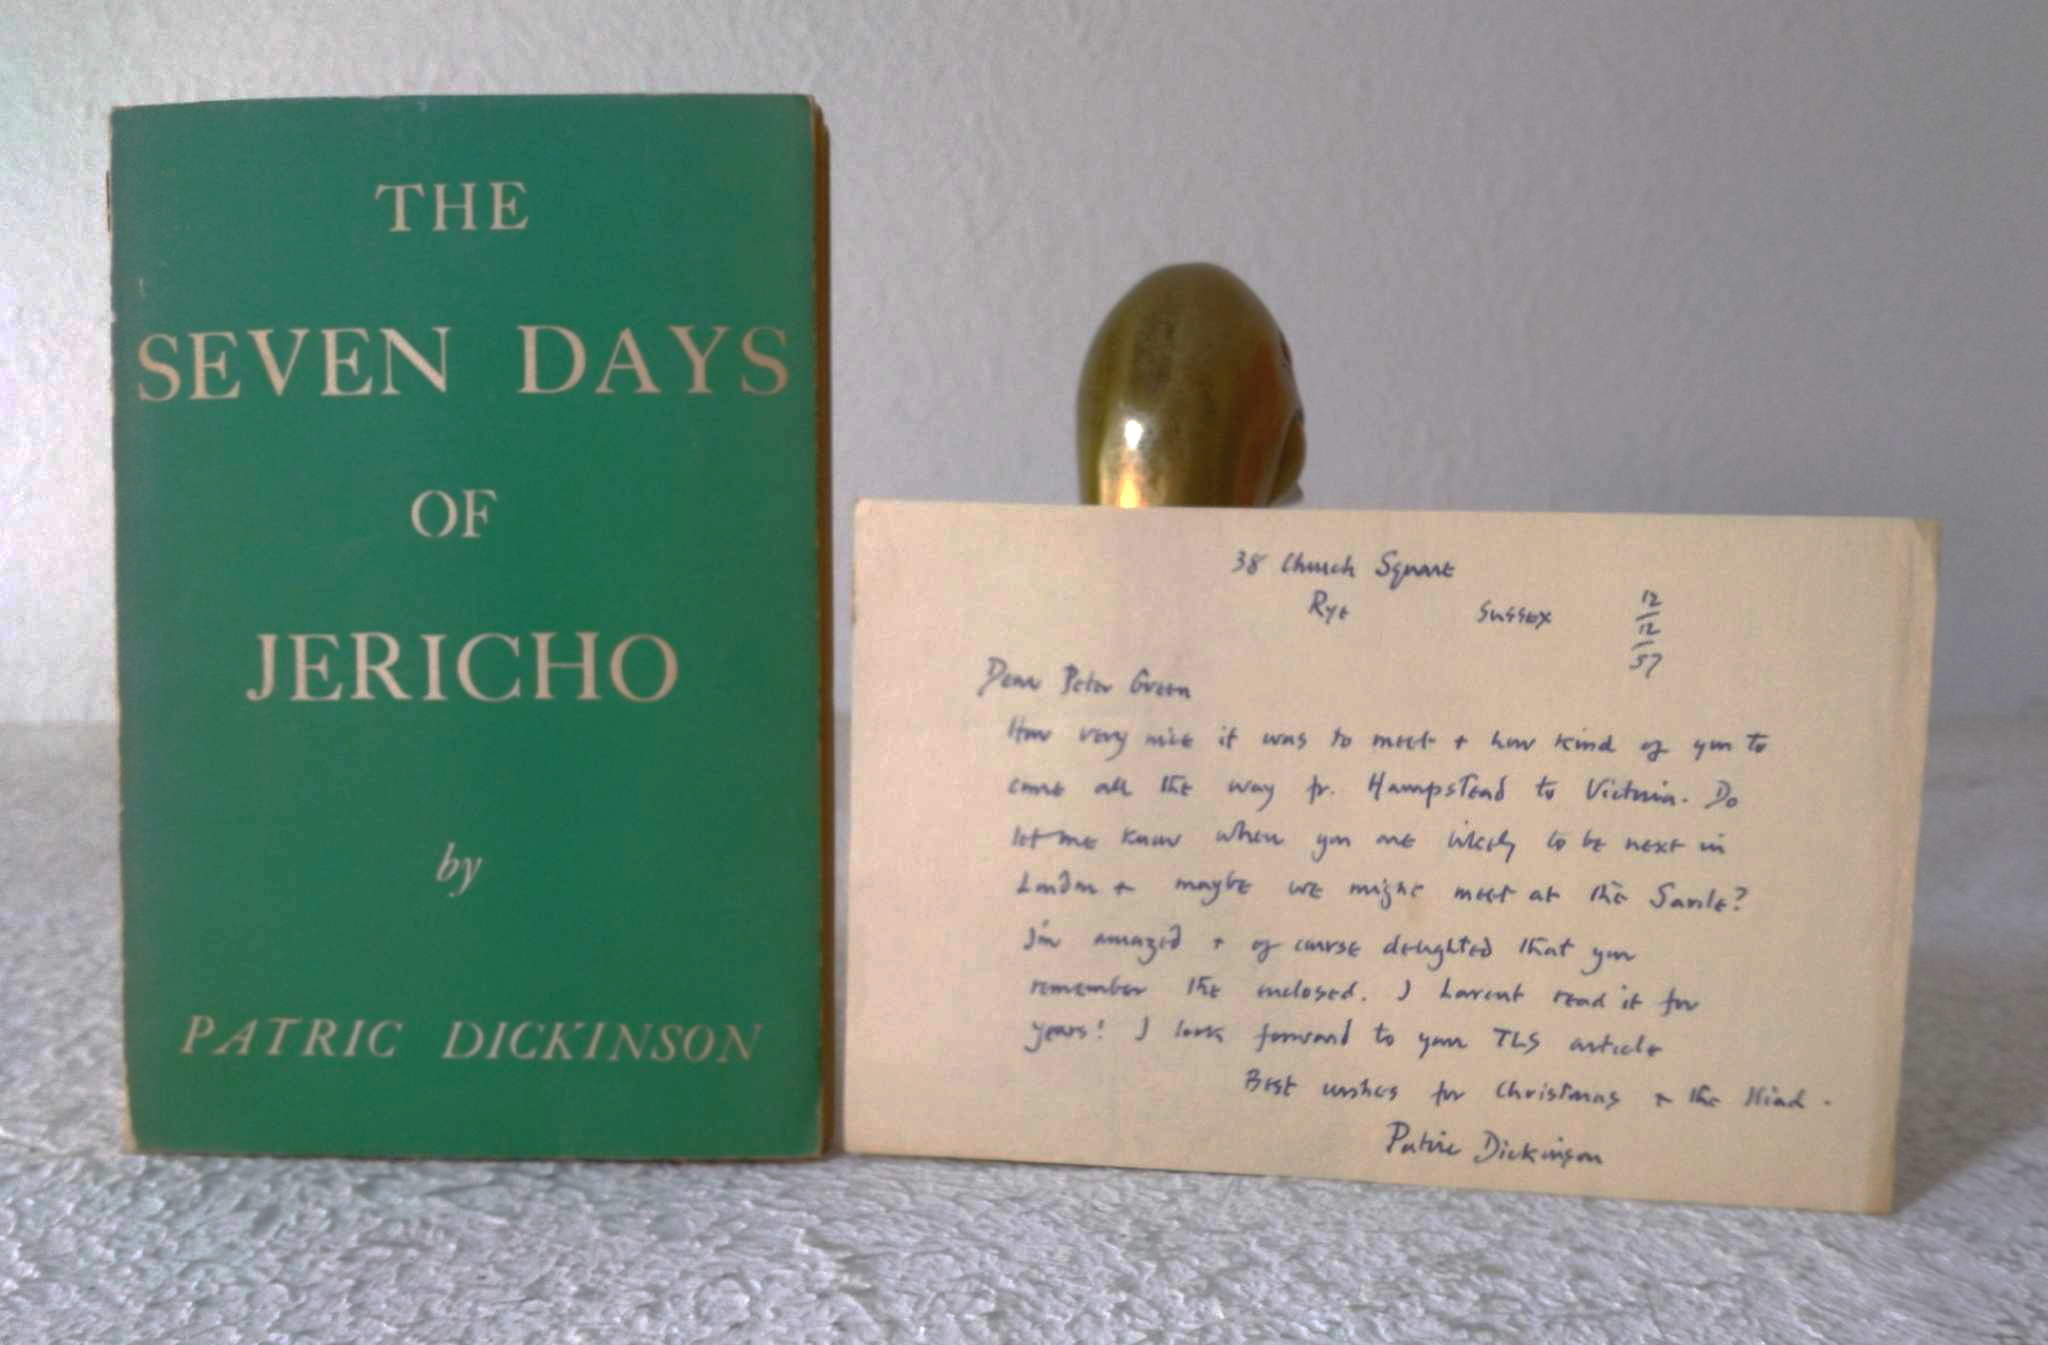 THE
SEVEN DAYS
OF
JERICHO
by
PATRIC DICKINSON
38 Church Square
Rye Sussex 12/12/57
Dear Peter Green
How very nice it was to meet + how kind of you to
come all the way fr. Hampstead to Victoria. Do
let me know when you are likely to be next in
London + maybe we might meet at the Savile?
I'm amazed + of course delighted that you
remember the enclosed. I havent read it for
years! I look forward to your TLS article
Best wishes for Christmas + the Iliad.
Patric Dickinson